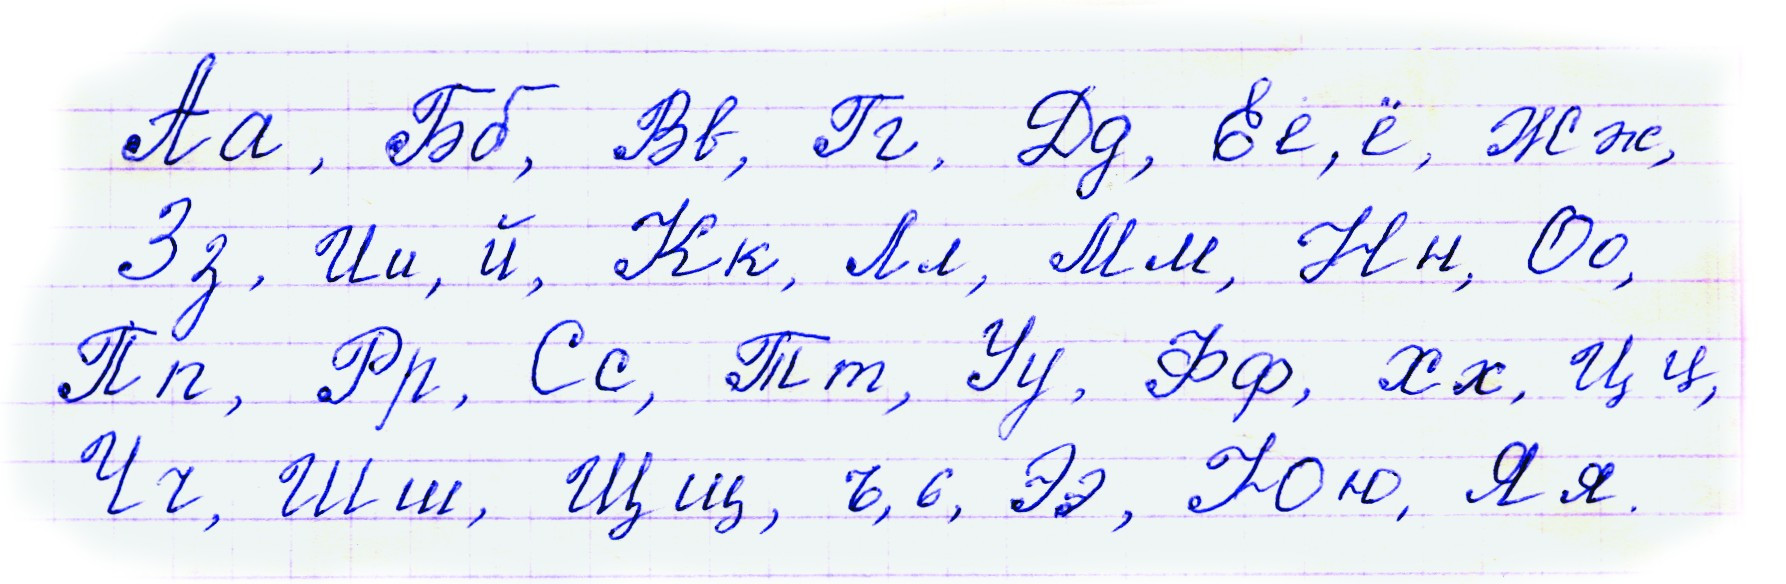 Аа, Бб, Вв, Гг, Дд, Ее, ё, Жж,
Зз, Ии, й, Кк, Лл, Мм, Нн, Оо,
Пп, Рр, Сс, Тт, Уу, Фф, Хх, Цц,
Чч, Шш, Щщ, ъ, ь, Ээ, Юю, Яя.